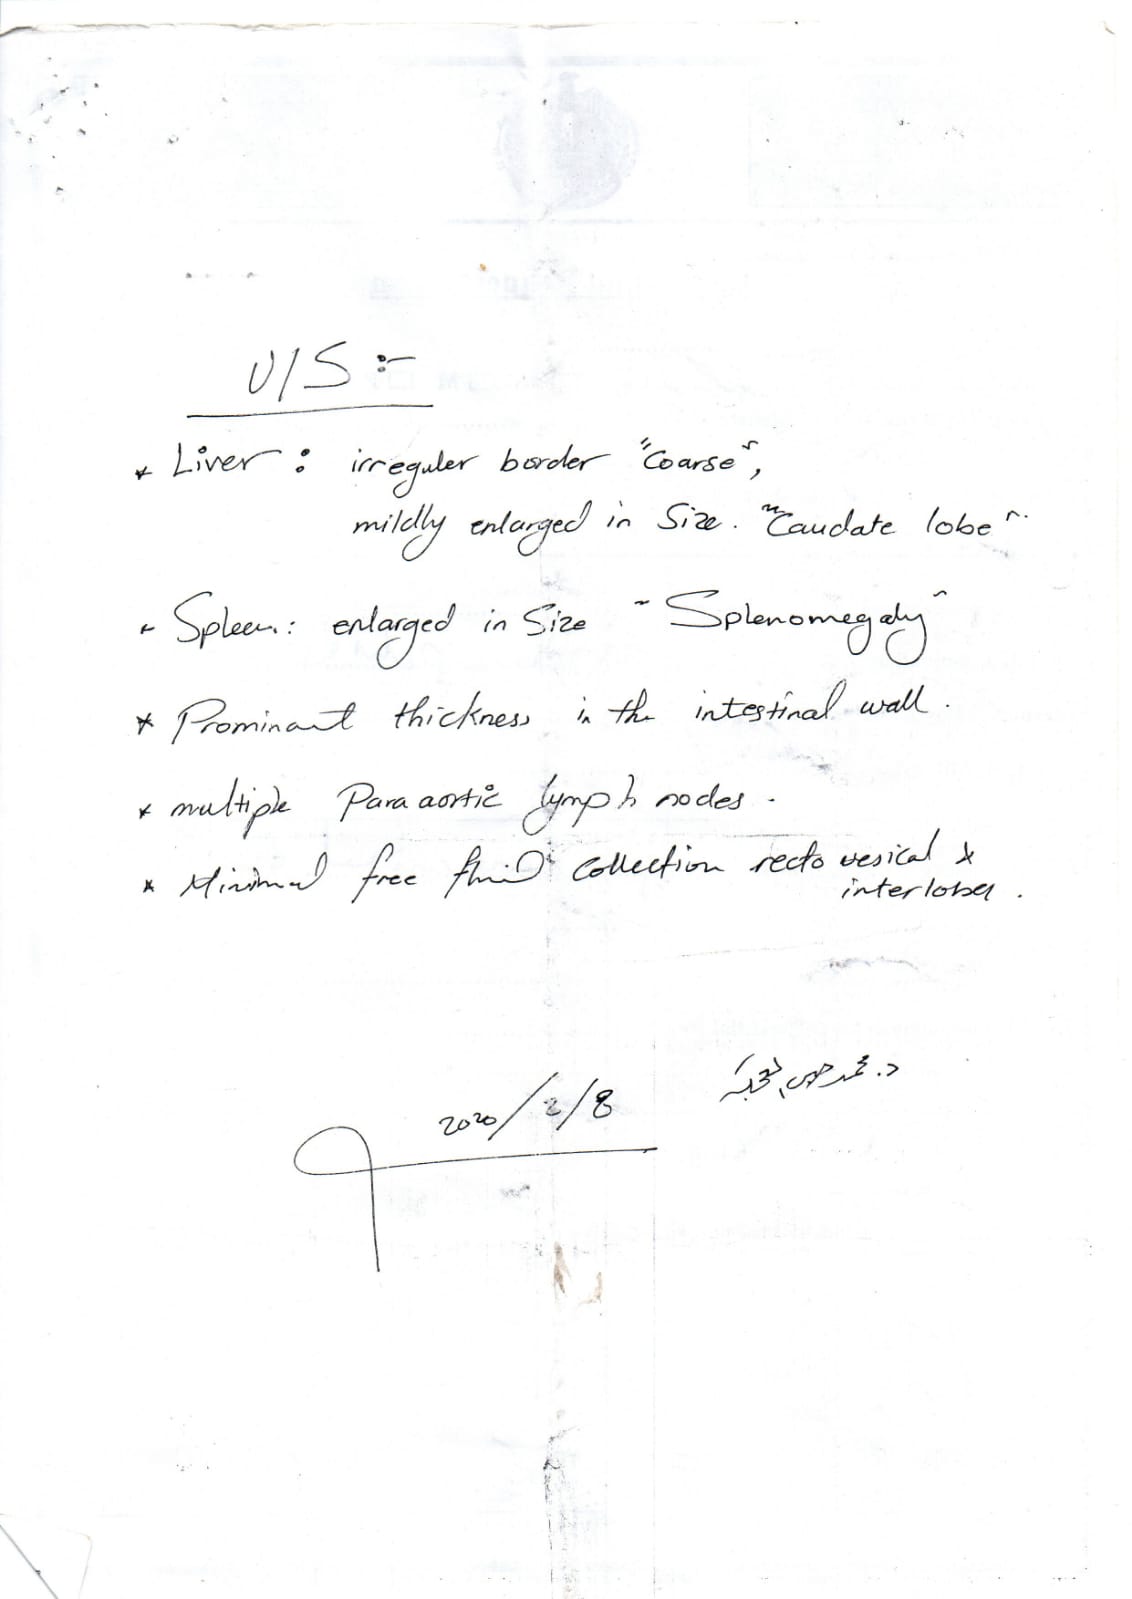 U/S :-
* Liver : irreguler border "Coarse",
mildly enlarged in Size. "Caudate lobe".
* Spleen : enlarged in Size "Splenomegaly"
* Prominant thickness in the intestinal wall.
* multiple Para aortic lymph nodes.
* Minimal free fluid collection recto vesical &
interlobar.
د. محمد
2020/2/8